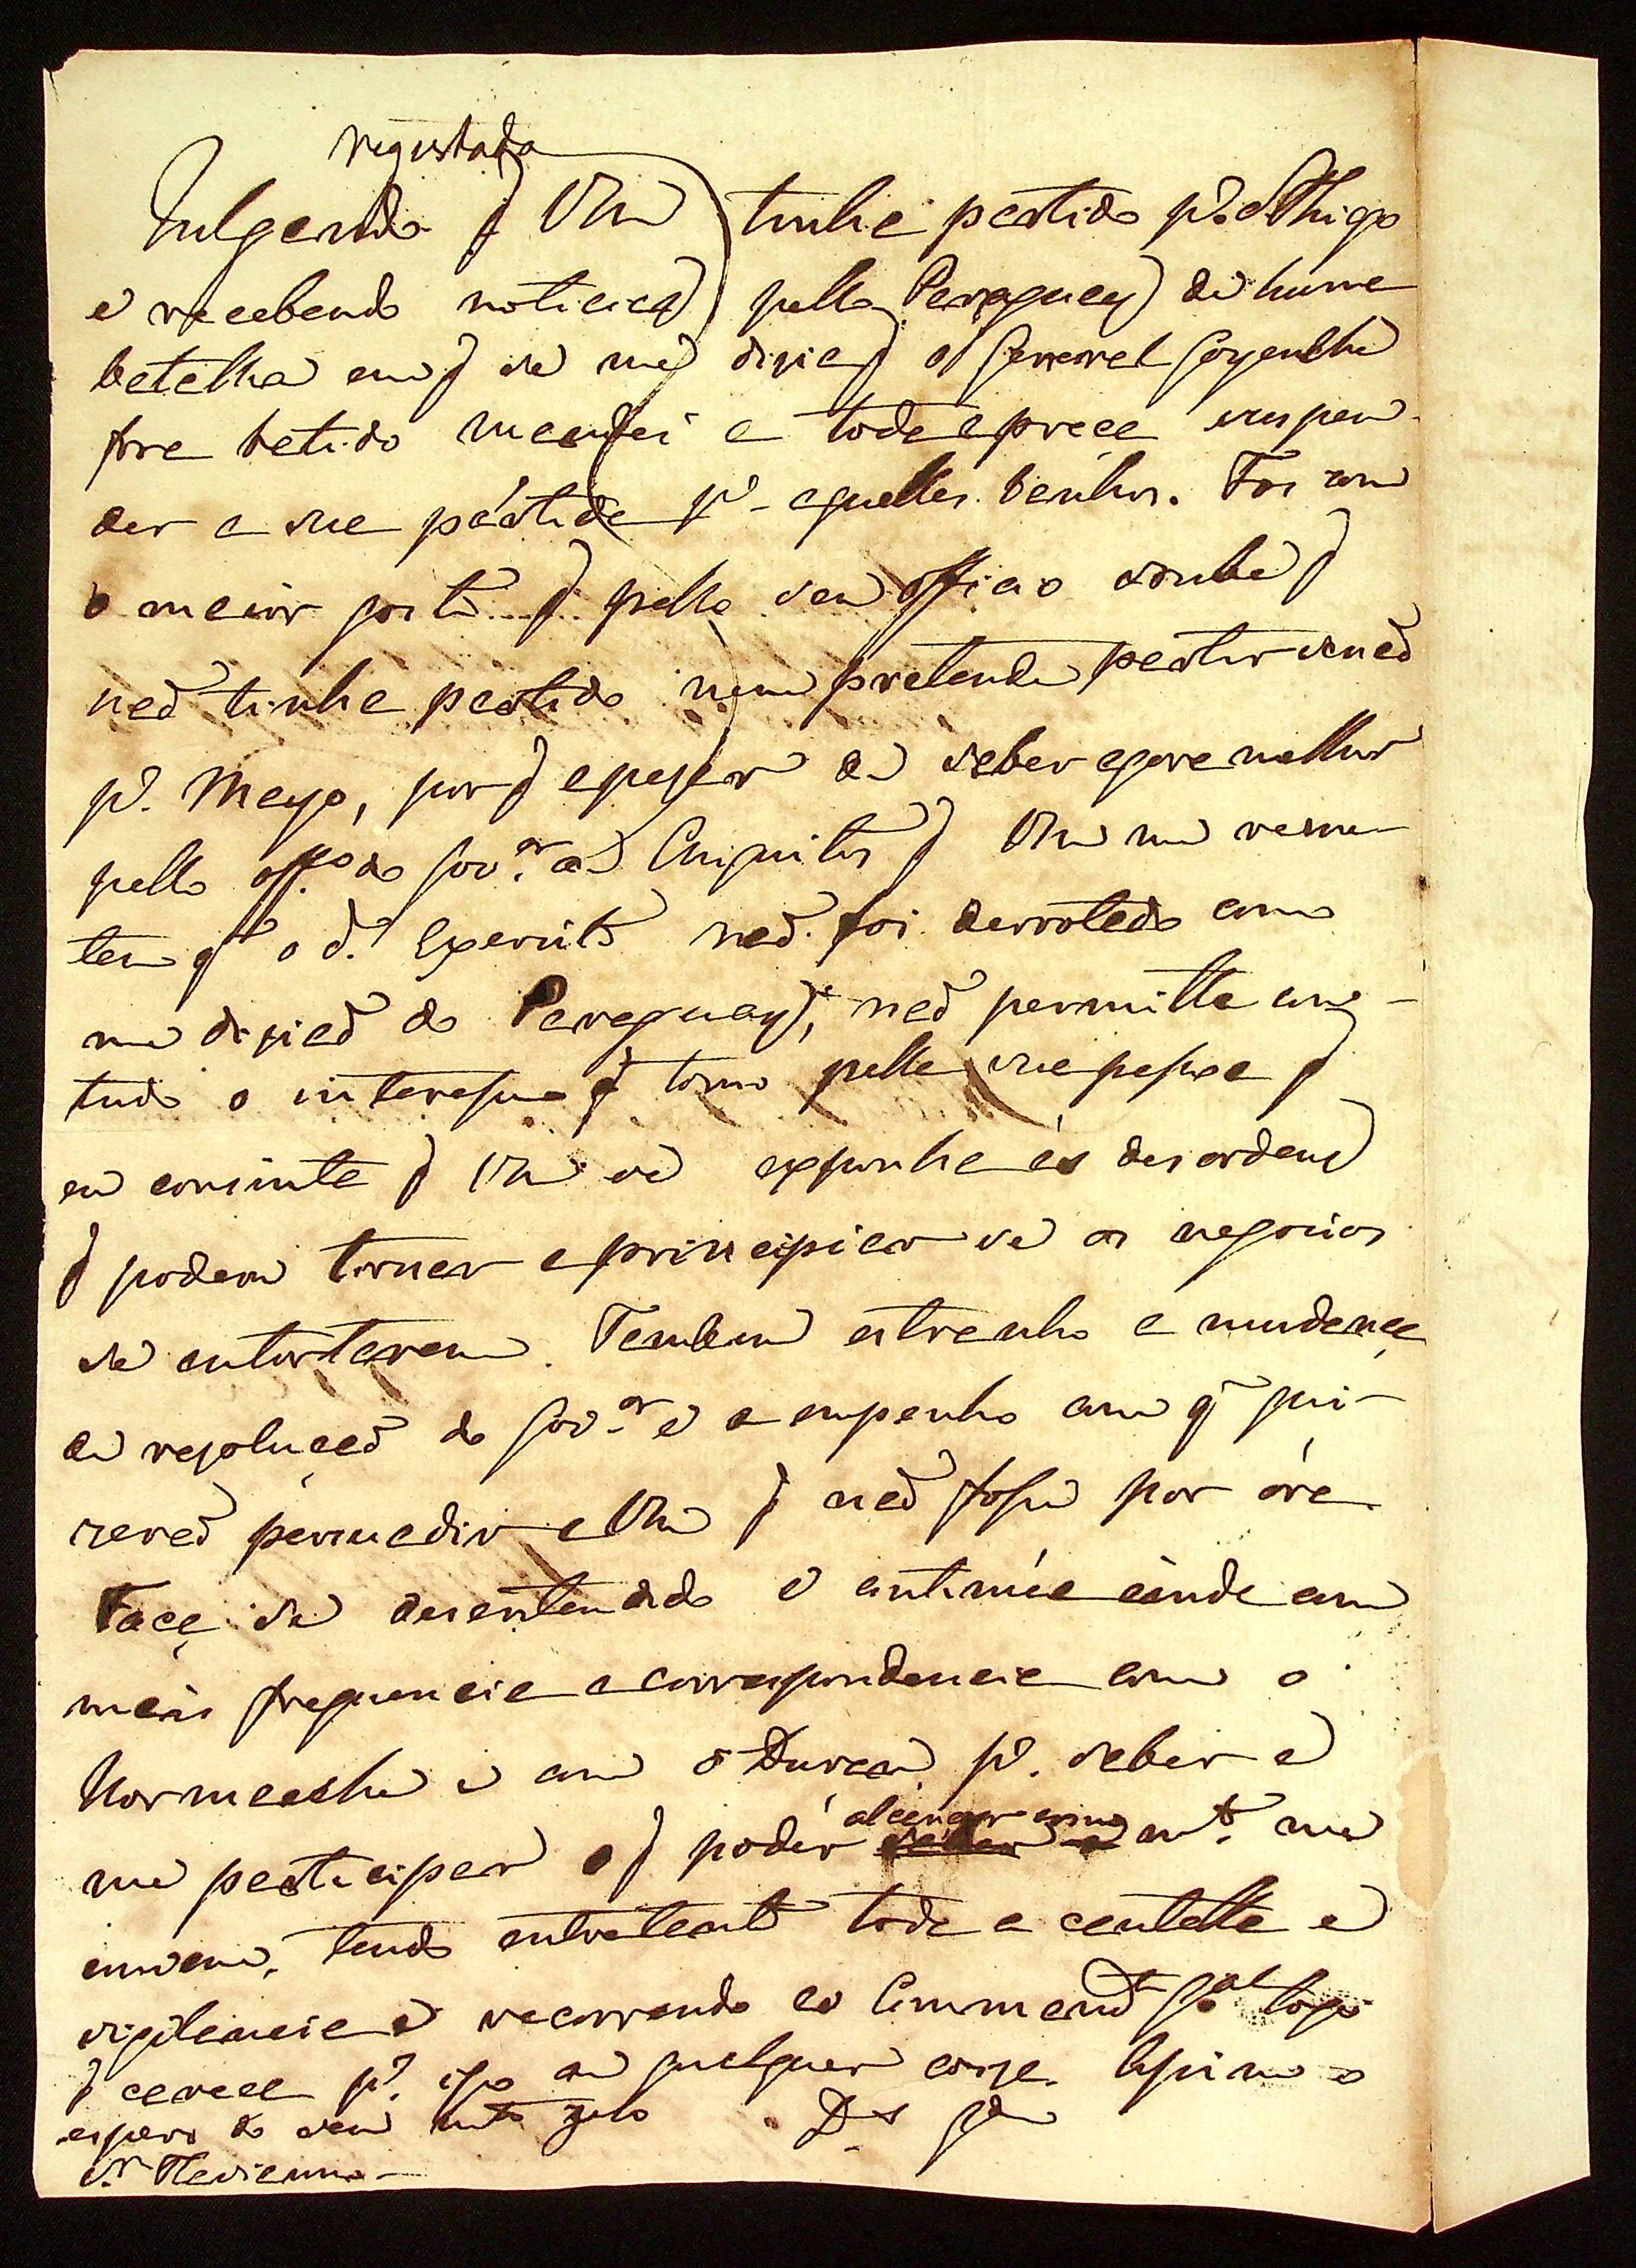 registada
Julgando q̃ Vm tinha partido pª. S Thiago
e recebendo noticias pello Paraguay de huma
batalha em q̃ se me dizia q̃ o General Goyenche
fora batido mandei a toda a preça suspen-
der a sua partida pª. aquelles Senhor. Foi com
o maior gosto q̃ pello seu officio soube q̃
naõ tinha partido nem pretende partir senaõ
pª. Mayo, por q̃ apezar de saber agora melhor
pello offº. do Govºr. de Chiquitos q̃ Vm me reme-
teu qᵉ o dº. Exercito naõ foi derrotado como
me diziaõ do Paraguay, naõ permitte com-
tudo o interesse q̃ tomo pella sua pessoa q̃
eu consinta q̃ Vm se exponha ás desordens
q̃ podem tornar a principiar se os negocios
se entortarem. Tambem estranho a mudança
de rezoluçaõ do Govºr. e o empenho com qᵉ qui-
zeraõ persuadir a Vm q̃ naõ fosse por óra.
Faça se desentendido e continúe ainda com
mais frequencia a correspondencia com o
e com o Duran pª. saber e
me participar o q̃ podér alcançar como atᵉ. me
enviou, tendo entretanto toda a cautella e
vigilancia e recorrendo ao Commendᵗᵉ Gᵃˡ logo
q̃ careça pª. isso de qualquer coiza. Assim o
espero do seu mᵗᵒ zelo Dˢ Gᵈᵉ
Sʳ. Flavianno